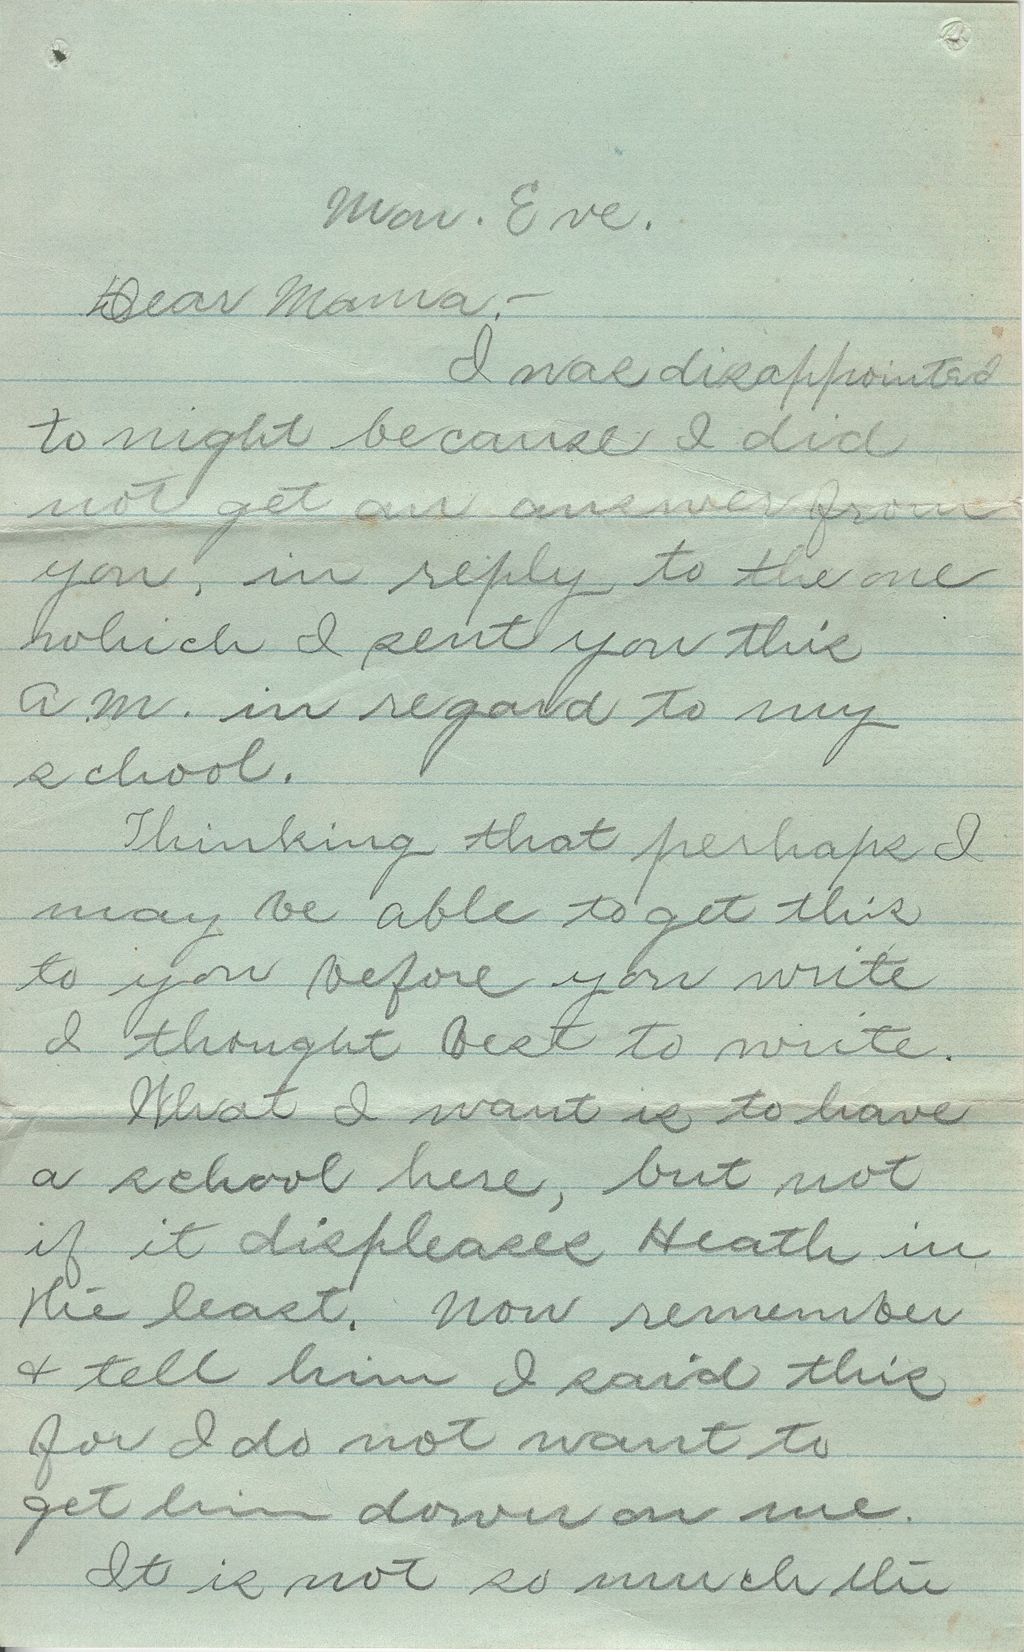 Mon. Eve.
Dear Mama,-
I was disappointed
to night because I did
not get an answer from
you, in reply to the one
which I sent you this
a.m. in regard to my
school.
Thinking that perhaps I
may be able to get this
to you before you write
I thought best to write.
What I want is to have
a school here, but not
if it displeases Heath in
the least. Now remember
& tell him I said this
for I do not want to
get him down on me.
It is not so much the